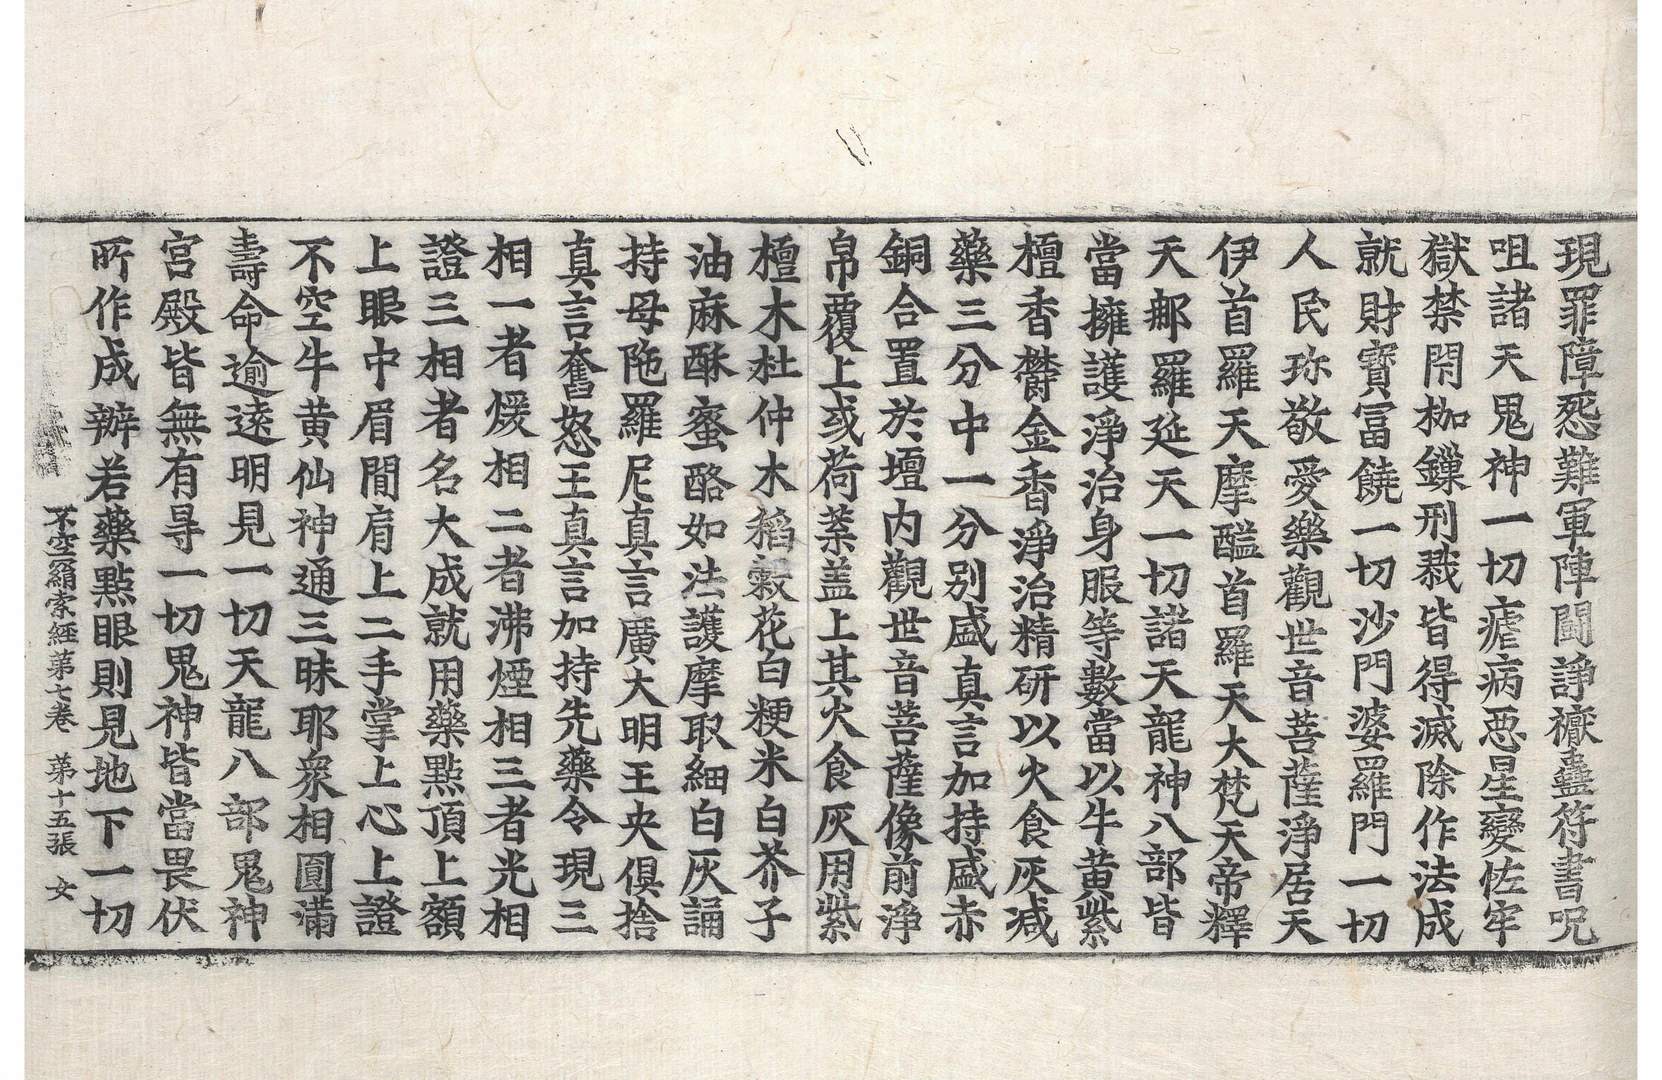 現罪障惡難軍陣鬪諍襽蠱符書呪
咀諸天鬼神一切瘧病惡星變怪牢
獄禁閇枷鏁刑戮皆得滅除作法成
就財寶冨饒一切沙門婆羅門一切
人民珎敬愛樂觀世音菩薩淨居天
伊首羅天摩醯首羅天大梵天帝釋
天那羅延天一切諸天龍神八部皆
當擁護淨治身服等數當以牛黄紫
檀香欝金香淨治精研以火食灰减
藥三分中一分别盛真言加持盛赤
銅合置於壇内觀世音菩薩像前淨
帛覆上或荷葉盖上其火食灰用紫
檀木杜仲木稻穀花白粳米白芥子
油麻酥蜜酪如法護摩取細白灰誦
持母陁羅尼真言廣大明王央俱捨
真言奮怒王真言加持先藥令現三
相一者煖相二者沸煙相三者光相
證三相者名大成就用藥點頂上額
上眼中眉間肩上二手掌上心上證
不空牛黄仙神通三昧耶衆相圓滿
壽命逾遠明見一切天龍八部鬼神
宮殿皆無有㝵一切鬼神皆當畏伏
所作成辦若藥點眼則見地下一切
不空羂索經第七卷 第十五張 女